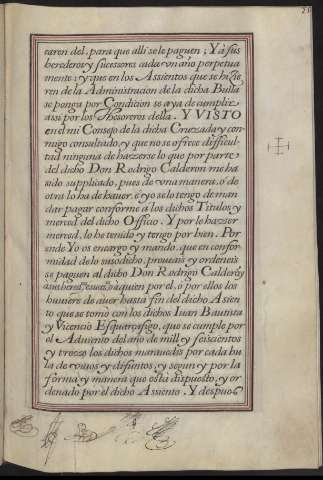 earen del, para que alli se le paguen; Y a sus
herederos y sucessores cada un año perpetua
mente; y que en los Assientos que se hizie
ren de la Administracion de la dicha Bulla
se ponga por Condicion se aya de cumplir
assi por los thesoreros della. Y VISTO
en el mi Consejo de la dicha Cruzada y con
migo consultado, y que no se ofrece difficul
tad ninguna de hazerse lo que por parte
del dicho Don Rodrigo Calderon me ha
sido supplicado, pues de una manera, ó de
otra lo ha de hauer, ó yo se lo tengo de man
dar pagar conforme á los dichos Titulos y
merced del dicho Officio. Y por le hazer
merced, lo he tenido y tengo por bien. Por
ende Yo os encargo y mando, que en confor
midad de lo susodicho, proueais y ordeneis
se paguen al dicho Don Rodrigo Calderó y
a sus hered.os á quien por el, ó por ellos los
huuiere de auer hasta fin del dicho Asien
to que se tomó con los dichos Iuan Bautista
y Vicencio Esquarçafigo, que se cumple por
el Aduiento del año de mill y seiscientos
y treze los dichos marauedis por cada bu
la de viuos y difuntos, y segun y por la
forma y manera que está dispuesto, y or
denado por el dicho Assiento. Y despues